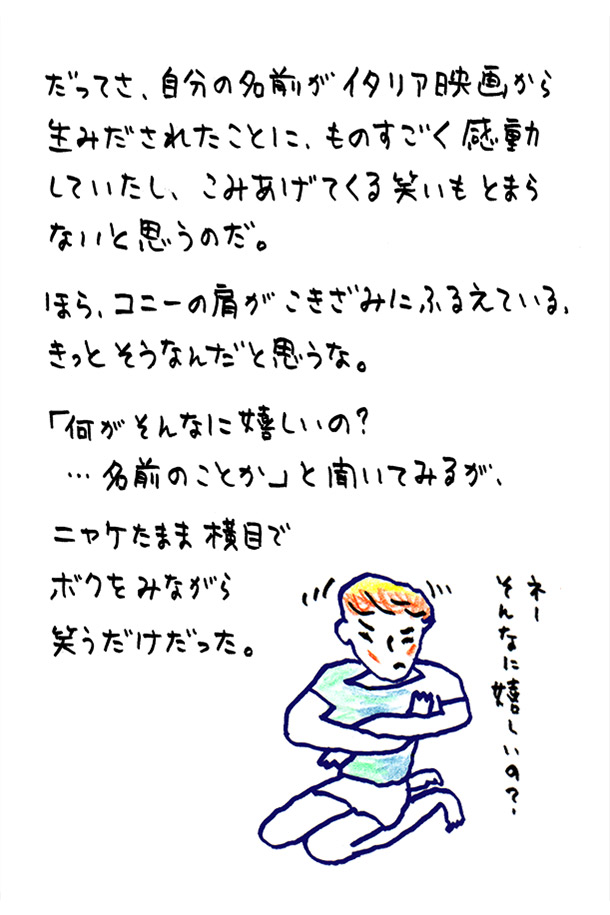 だってさ、自分の名前がイタリア映画から
生みだされたことに、ものすごく感動
していたし、こみあげてくる笑いもとまら
ないと思うのだ。
ほら、コニーの肩がこきざみにふるえている、
きっとそうなんだと思うな。
「何がそんなに嬉しいの?
…名前のことか」と聞いてみるが、
ニヤケたまま横目で
ボクをみながら
笑うだけだった。
ネー
そんなに嬉しいの?